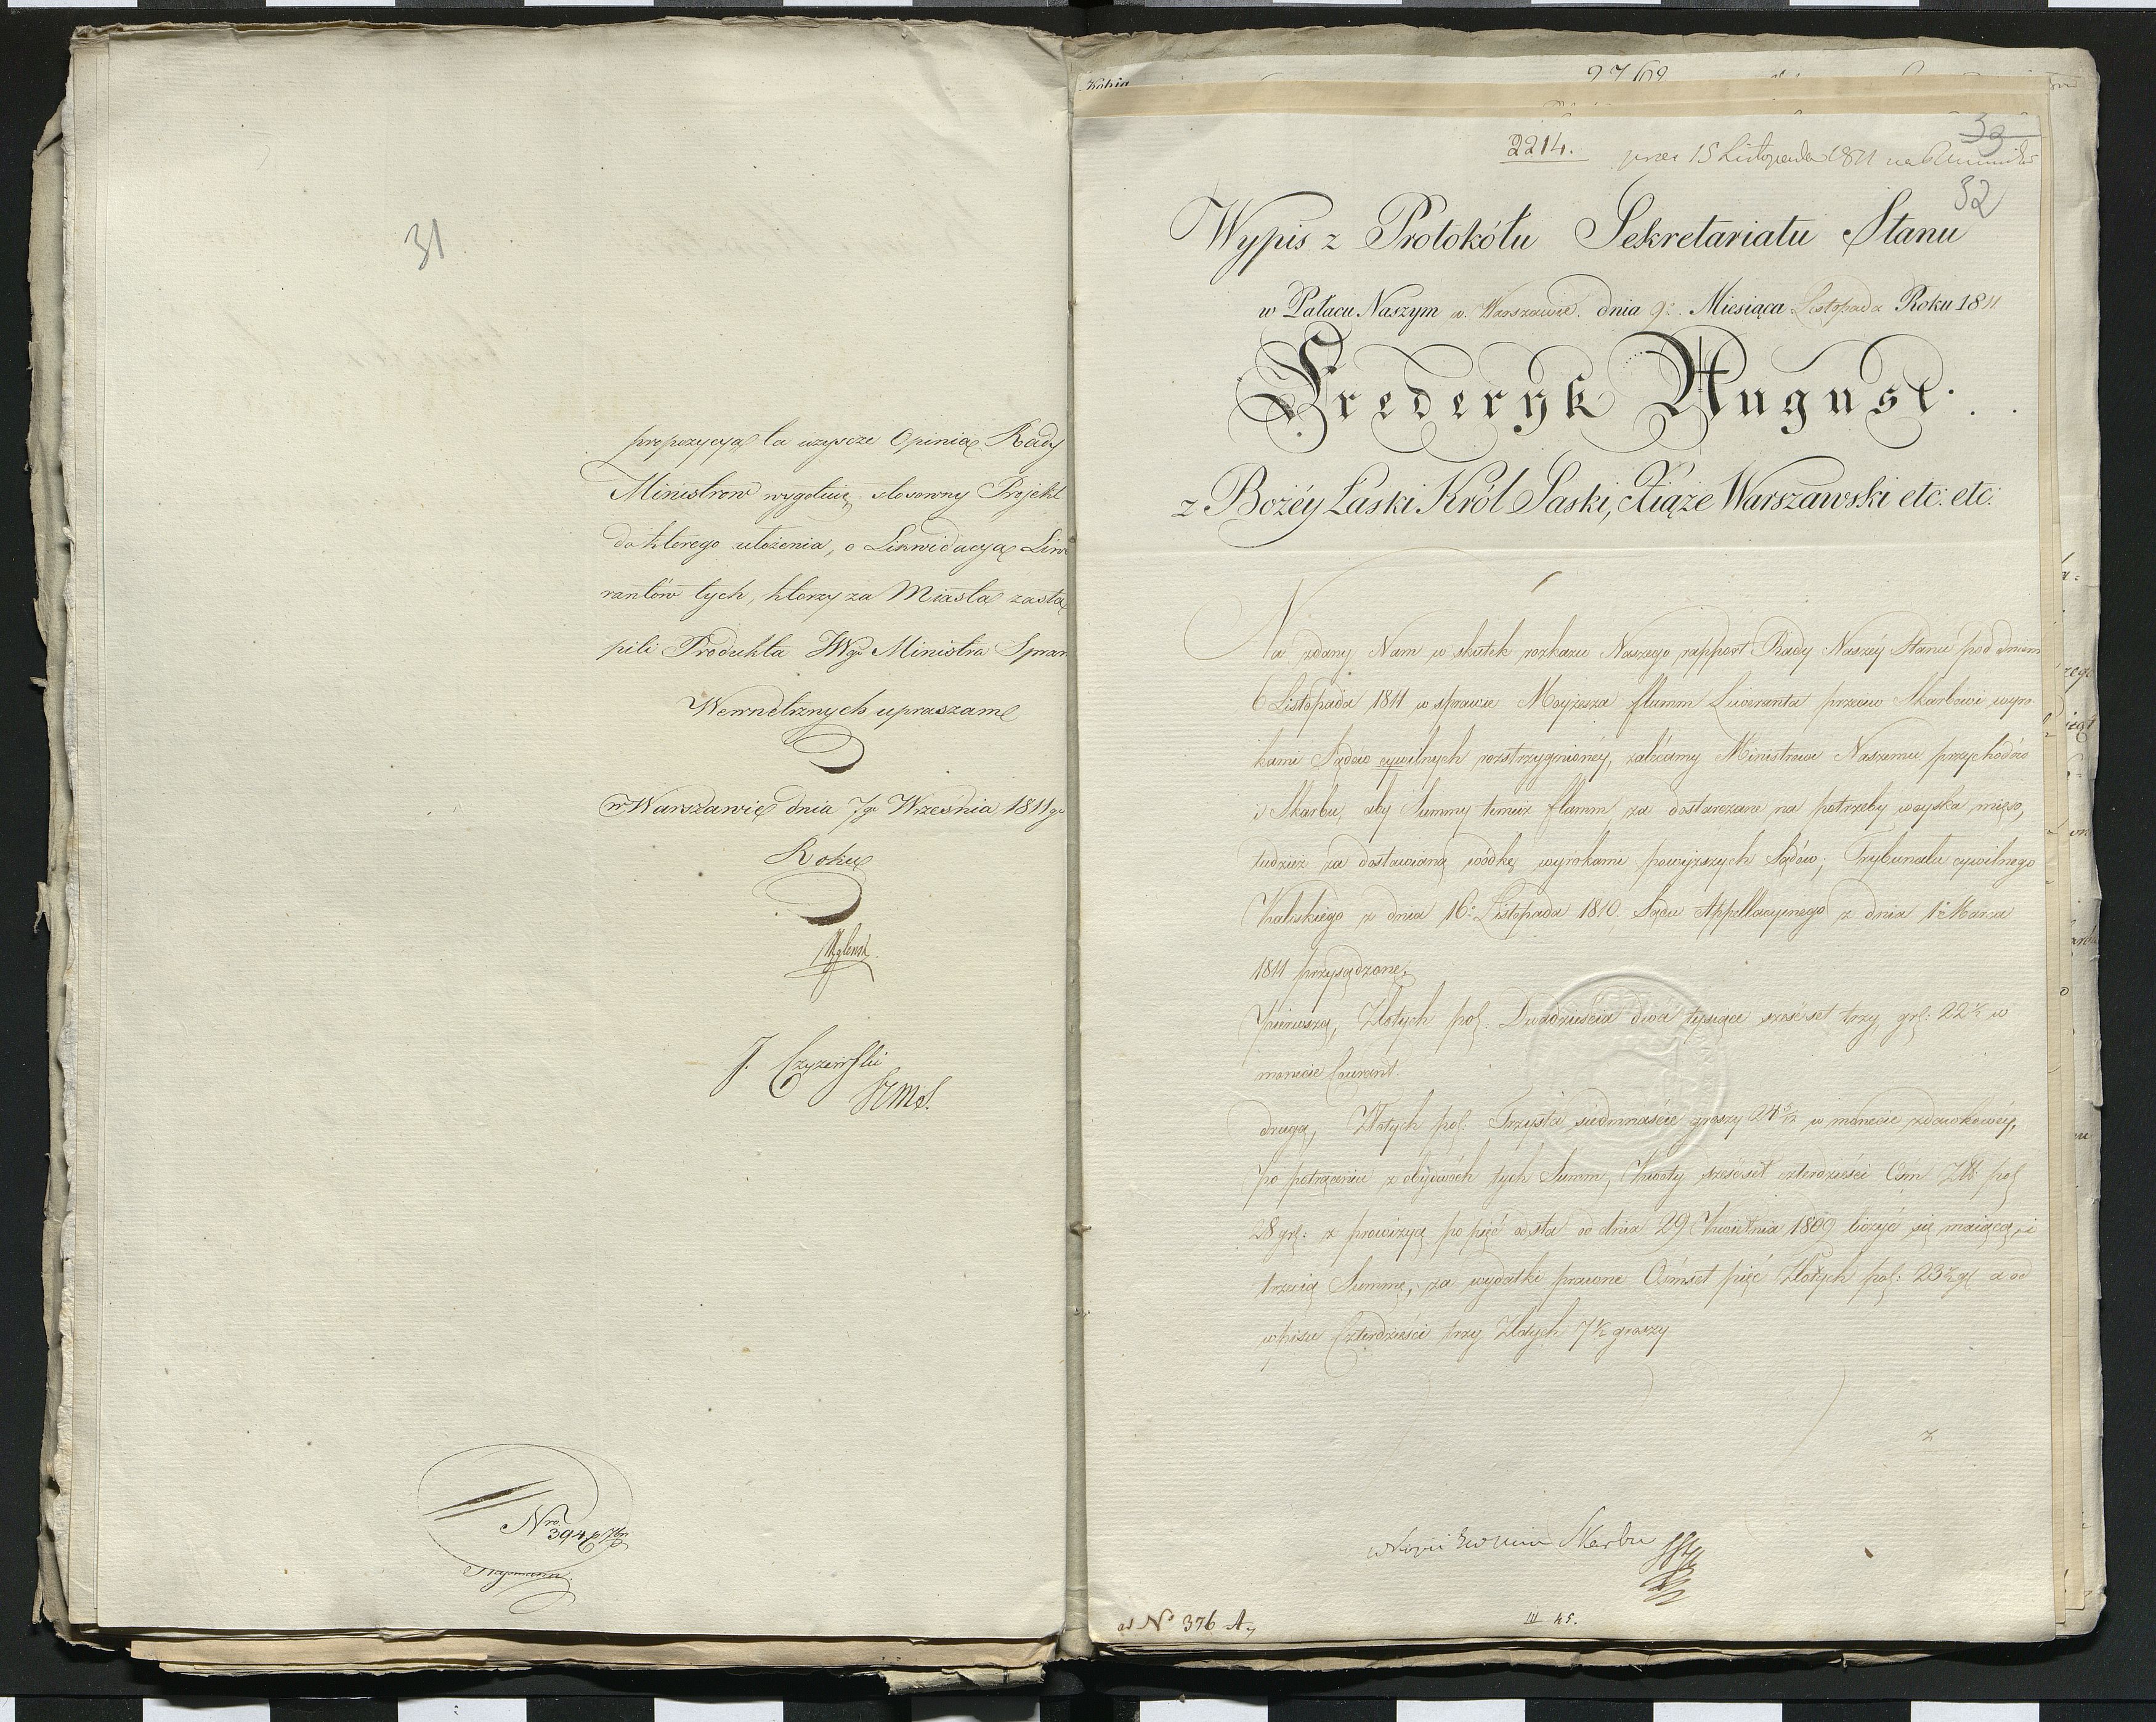 31
propozycyą ta uzyszcze Opinią Rady
Ministrow wygotuię stosowny Projekt
do ktorego ułożenia, o Likwidacyą Liwe
rantów tych, ktorzy za Miasta zastą
pili Produkta JWgo Ministra Spraw
Wewnetrznych upraszam
w Warszawie dnia 7go Września 1811go
Roku
J. Czyżewski
Nro 3946
2769
33
2214. 15 Listopada 1811
32
Wypis z Protokółu Sekretariatu Stanu
w Pałacu Naszym w Warszawie dnia 9. Miesiąca Listopada Roku 1811
Fryderyk August
z Bożéy Łaski Król Saski, Xiąże Warszawski etc: etc:
Na zdany Nam w skutek rozkazu Naszego rapport Rady Naszéy Stanu pod dniem
6 Listopada 1811 w sprawie Moyżesza Flamm Liweranta przeciw Skarbowi wyro
kami Sądów cywilnych rozstrzygnionéy, zalecamy Ministrowi Naszemu przychodów
i Skarbu, aby Summy temuż Flamm za dostarczane na potrzeby woyska mięso,
tudzież za dostawianą wodkę wyrokami powyższych Sądów; Trybunału cywilnego
Kaliskiego z dnia 16 Listopada 1810. Sądu Appellacyinego z dnia 1 Marca
1811 przysądzone,
pierwszą, Złotych pol. Dwadzieścia dwa tysiące sześćset trzy gr: 22 ½ w
monecie Courant.
drugą, Złotych pol: Trzysta siedmnaście groszy 24 w monecie zdawkowéy,
po potrąceniu z obydwóch tych Summ, kwoty sześćset czterdzieści Ośm Zł: pol
28 gr: z prowizyą po pięć od sta od dnia 29 Kwietnia 1809 liczyć się maiącą, i
trzecią Summę, za wydatki prawne Ośmset pięć Złotych pol: 23 ½ gr a od
wpisu Czterdzieści trzy Złotych 7 ½ groszy
z
Skarbu
ad No 376 A.
III 45.